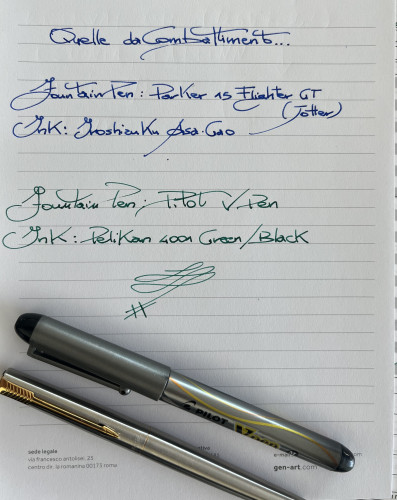 Quelle da Combattimento...
Fountain Pen: Parker 15 Flighter GT
(Jotter)
Ink: Iroshizuku Asa-Gao
Fountain Pen: Pilot V Pen
Ink: Pelikan 4001 Green/Black
#
PILOT
sede legale
via francesco antolisei, 23
centro dir. la romanina 00173 roma
gen-art.com